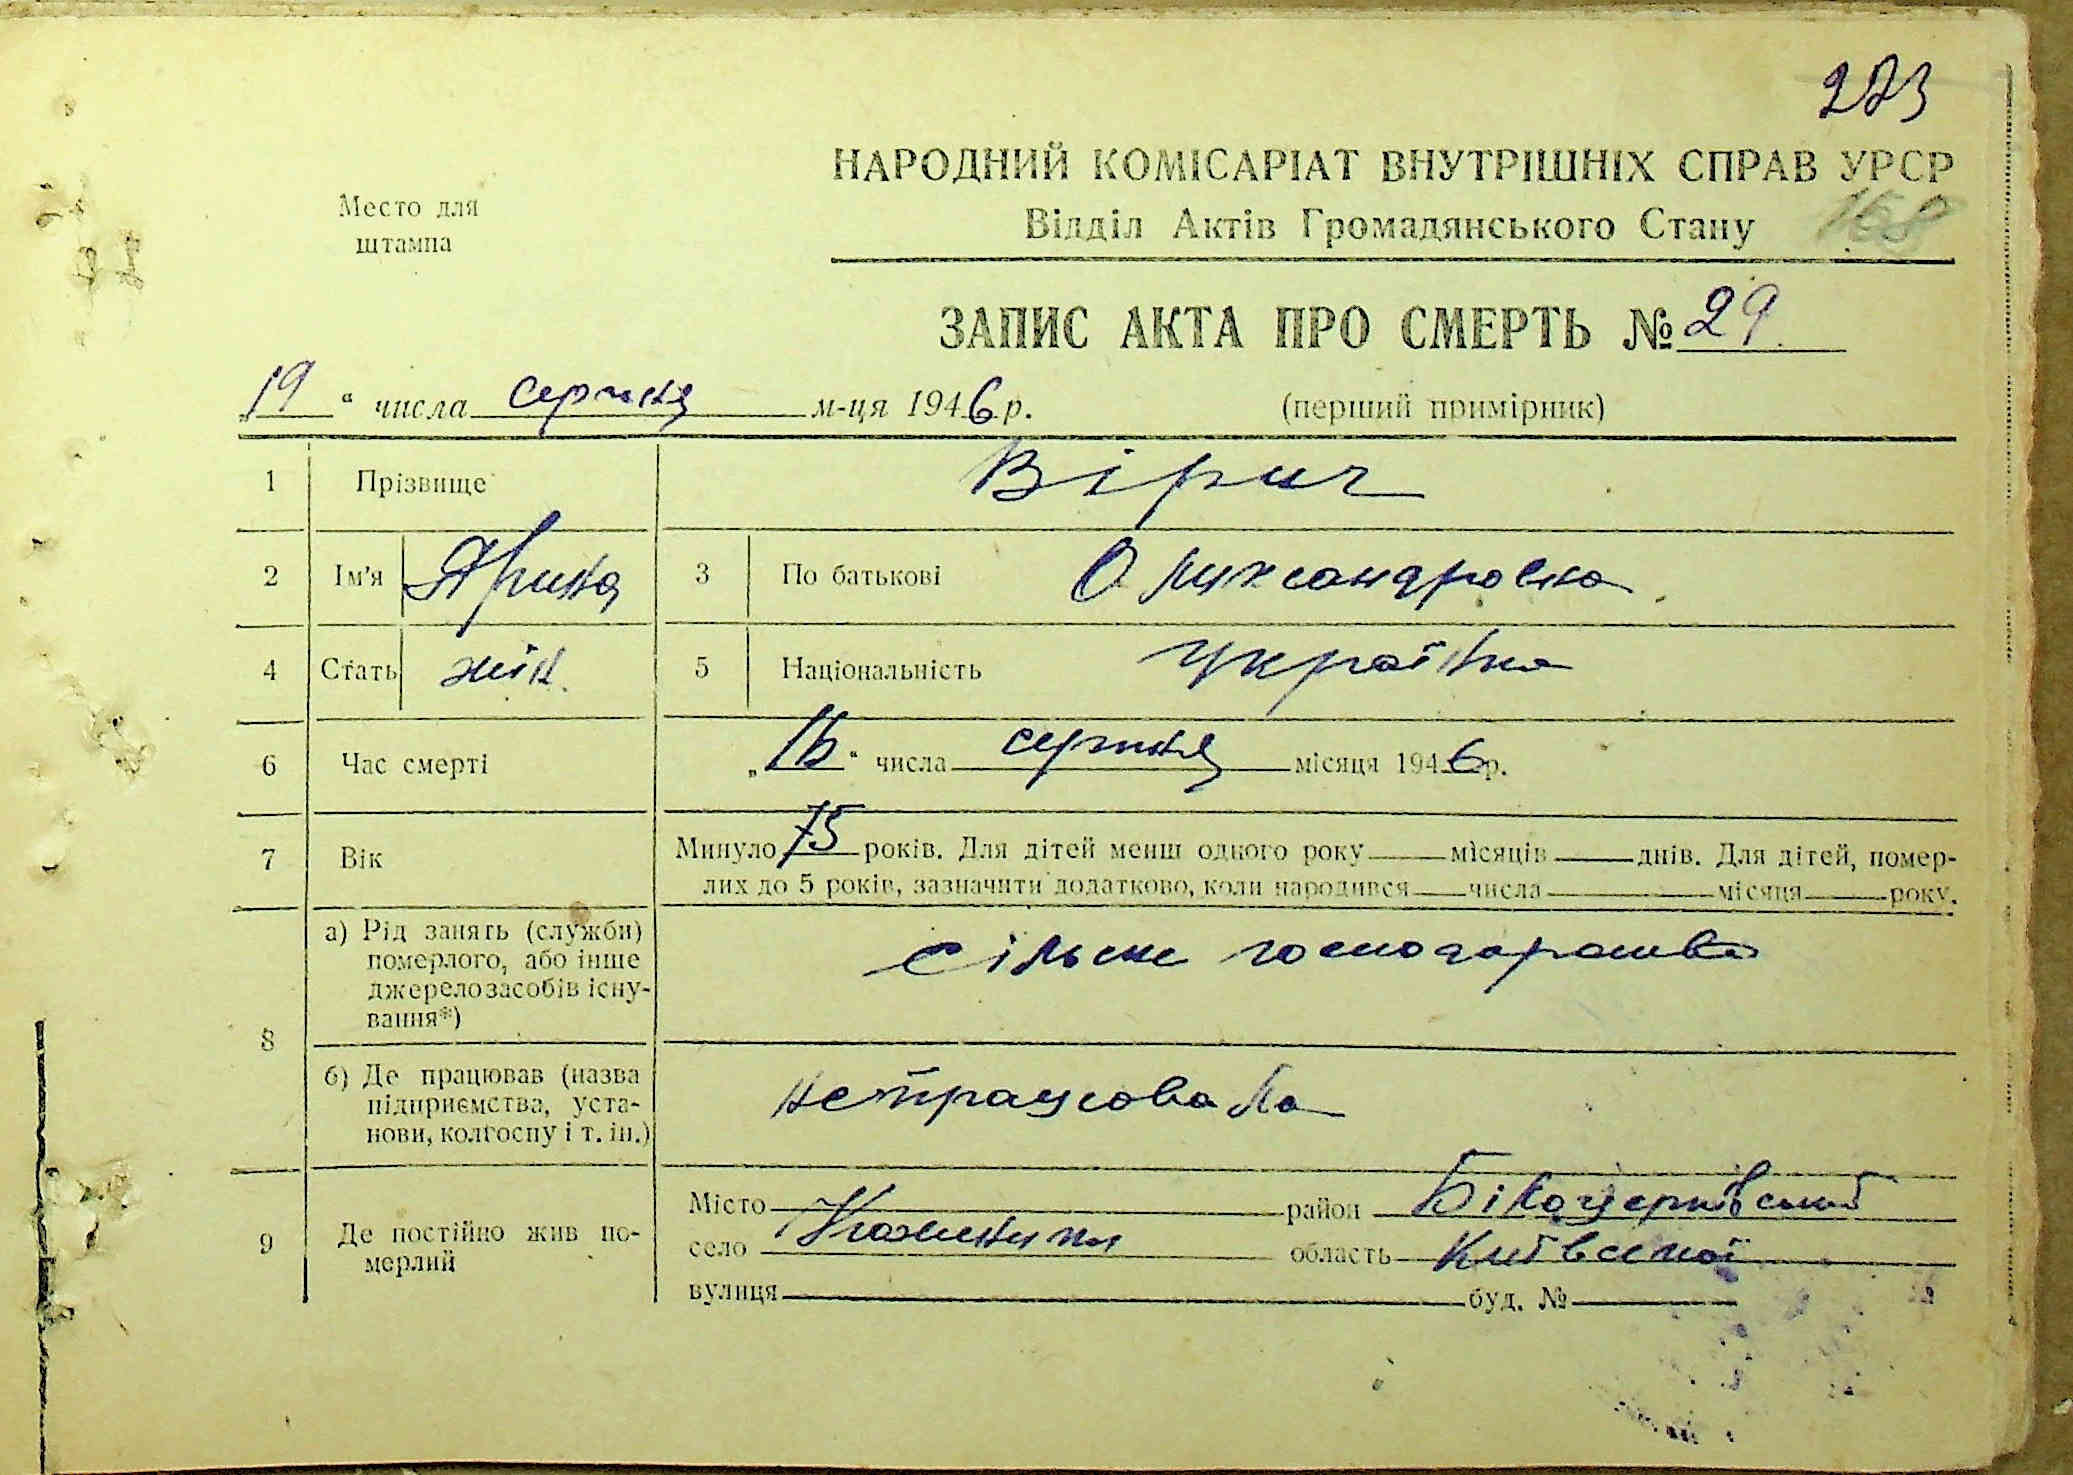 273
НАРОДНИЙ КОМІСАРІАТ ВНУТРІШНІХ СПРАВ УРСР
Место для штампа
Відділ Актів Громадянського Стану
168
ЗАПИС АКТА ПРО СМЕРТЬ № 29
„19“ числа серпня м-ця 1946 р.
(перший примірник)
1 Прізвище Вірич
2 Ім'я Ярина 3 По батькові Олександровна
4 Стать жін. 5 Національність українка
6 Час смерті „16“ числа серпня місяця 1946 р.
7 Вік Минуло 75 років. Для дітей менш одного року — місяців — днів. Для дітей, помер-
лих до 5 років, зазначити додатково, коли народився — числа — місяця — року.
8 а) Рід занять (служби)
померлого, або інше
джерело засобів існу-
вання*)
сільське господарство
б) Де працював (назва
підприємства, уста-
нови, колгоспу і т. ін.)
непрацювала
9 Де постійно жив по-
мерлий
Місто — район Білоцерківський
село область Київської
вулиця — буд. № —